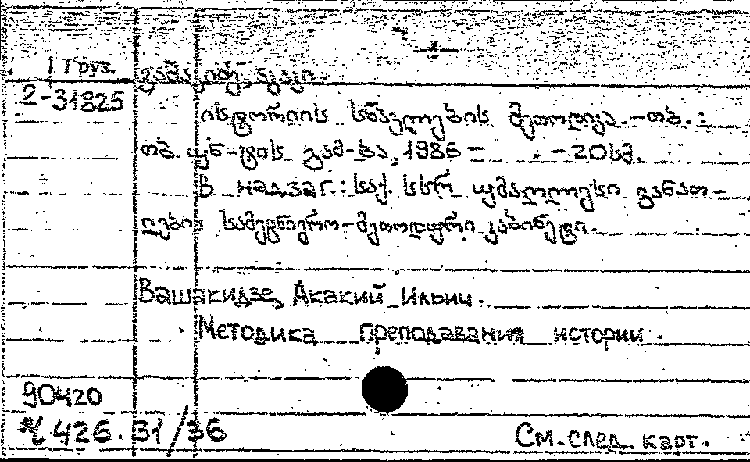 Груз.
ვაშაკიძე, აკაკი.
2-31825
ისტორიის სწავლების მეთოდიკა. -თბ. :
თბ. უნ-ტის გამ-ბა, 1986 - . -20სმ.
В надзаг.: საქ. სსრ უმაღლესი განათ-
ლების სამეცნიერო-მეთოდური კაბინეტი.
Вашакидзе, Акакий Ильич.
Методика преподавания истории.
90420
426.31/36
См. след. карт.